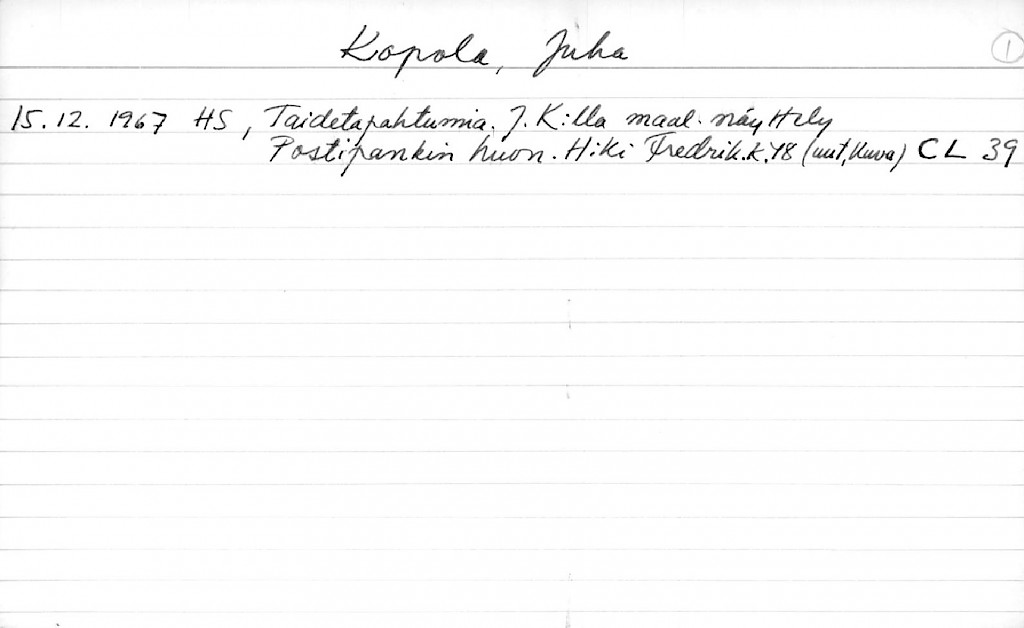 Kopola, Juha
1
15.12. 1967 HS, Taidetapahtumia. J. K:lla maal. näyttely
Postipankin huon. H:ki Fredrik.k.48 (uut, kuva) CL 39